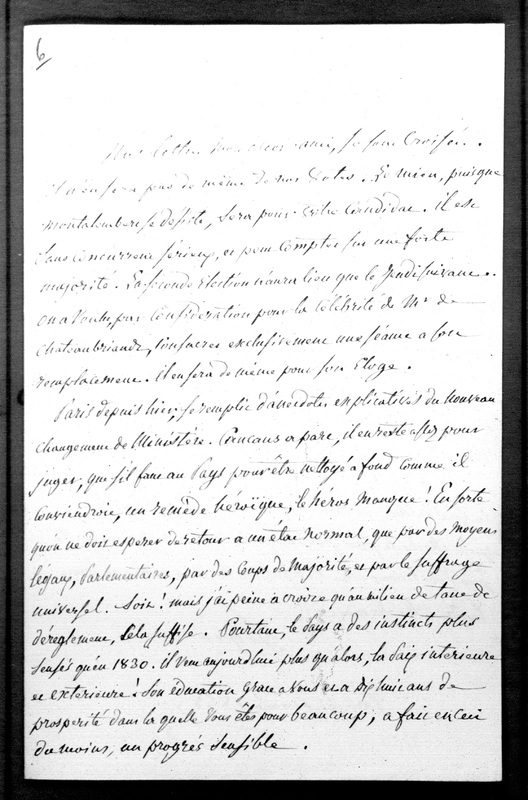 6
Nos lettres mon cher ami, se sont croisées.
il n'en sera pas de même de nos votes. Le mien, puisque
Montalembert se désiste, sera pour votre Candidat. il est
sans concurrent sérieux, et peut compter sur une forte
majorité. La seconde élection n'aura lieu que le Jeudi suivant.
on a voulu, par considération pour la célébrité de Mr de
Chateaubriand, consacrer exclusivement une séance a son
remplacement. il en sera de même pour son Eloge.
Paris depuis hier, se remplit d'anecdotes explicatives du nouveau
changement de Ministère. Cancans a part, il en reste assez pour
juger, que s'il faut au Pays pour être nettoyé a fond comme il
conviendroit, un remède héroïque, le héros manque! En sorte
qu'on ne doit esperer de retour a un état normal, que par des moyens
légaux, Parlementaires, par des coups de Majorité, et par le suffrage
universel. Soit! mais j'ai peine a croire qu'au milieu de tant de
déreglement, cela suffise. Pourtant, le Pays a des instincts plus
sensés qu'en 1830. il veut aujourdhui plus qu'alors, la Paix interieure
et exterieure! Son éducation grace a vous et a Dix huit ans de
prosperité dans la quelle vous êtes pour beaucoup, a fait en ceci
du moins, un progrès sensible.